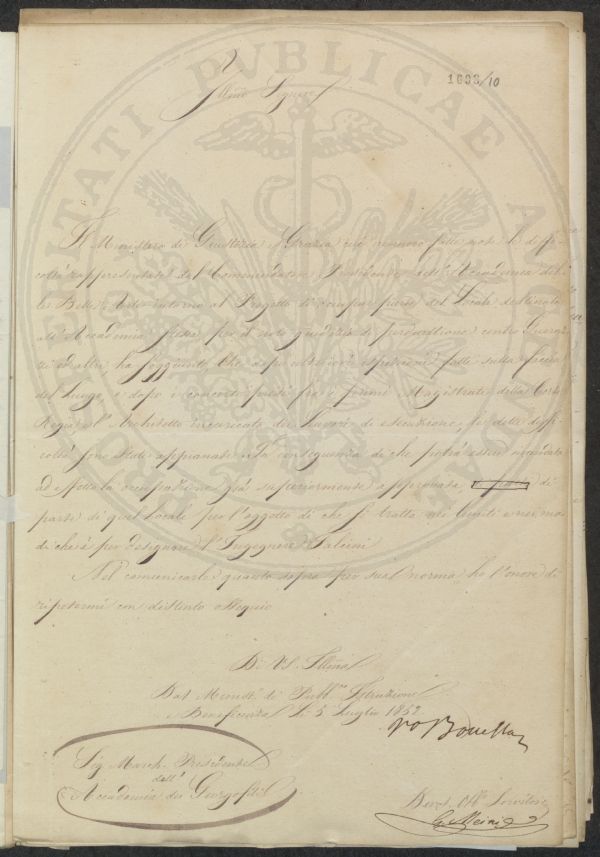 1833/10
Illmo Signore
Il Ministero di Giustizia e Grazia cui vennero fatte note le diffi-
coltà rappresentate dal Commendatore Presidente dell'Accademia del-
le Belle Arti intorno al Progetto di occupar parte del Locale destinato
all'Accademia stessa per il noto giudizio di perduellione contro Guerraz-
zi ed altri ha soggiunto, che dopo ulteriori ispezioni fatte sulla faccia
del Luogo, e dopo i concerti presi fra i primi Magistrati della Corte
Regia e l'Architetto incaricato dei Lavori di esecuzione le dette diffi-
coltà sono state appianate. In conseguenza di che potrà esser mandata
ad effetto la occupazione già superiormente approvata di
parte di quel Locale per l'oggetto di che si tratta nei limiti e nei mo-
di che à per designare l'Ingegnere
Nel comunicarle quanto sopra per sua norma, ho l'onore di
ripetermi con distinto ossequio
Di VS. Illma
Dal Minist. di Pubb. Istruzione
e Beneficenza Li 5 Luglio 1852
Sig. March. Presidente
dell'
Accademia dei Georgofili
Devot. Obb. Servitore